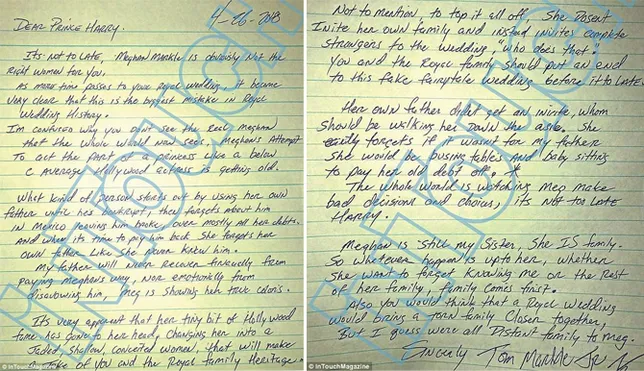 4-26-2018
DEAR PRINCE HARRY.
Its not to LATE, Meghan Markle is obviously Not the
Right Women for you.
As more time passes to your Royal Wedding, it became
very clear that this is the biggest mistake in Royal
Wedding History.
Im confused why you don't see the Real Meghan
that the whole world now sees. Meghan's attempt
To act the part of a princess like a below
C average Hollywood actress is getting old.
What kind of person starts out by using her own
father until hes bankrupt, then forgets about him
in Mexico leaving him broke, over mostly all her debts.
And when its time to pay him back She forgets her
own father like she never knew him.
My father will never recover financially from
paying Meghan's way, Nor emotionally from
disavowing him, Meg is showing her true colors.
It's very apparent that her tiny bit of Hollywood
fame has gone to her head, Changing her into a
Jaded, Shallow, conceited women, that will make
Joke of you and the Royal family Heritage.
© InTouchMagazine
Not to mention, to top it all off, She Dosent
Invite her own family and instead invites complete
Strangers to the wedding, "who does that".
You and the Royal family should put an end
to this fake fairytale wedding before it to Late.
Her own father didnt get an invite, whom
should be walking her down the asle. She
forgets if it wasnt for my father
She would be busing tables and baby sitting
to pay her old debt off.
The whole world is watching Meg make
bad decisions and choices, its not too Late
HARRY.
Meghan is Still my Sister, She IS family.
So whatever happen is up to her, whether
She want to forget knowing me or the Rest
of her family, family comes first.
Also you would think that a Royal Wedding
would bring a torn family closer together,
But I guess we're all Distant family to Meg.
Sincerly Tom Markle Jr
© InTouchMagazine